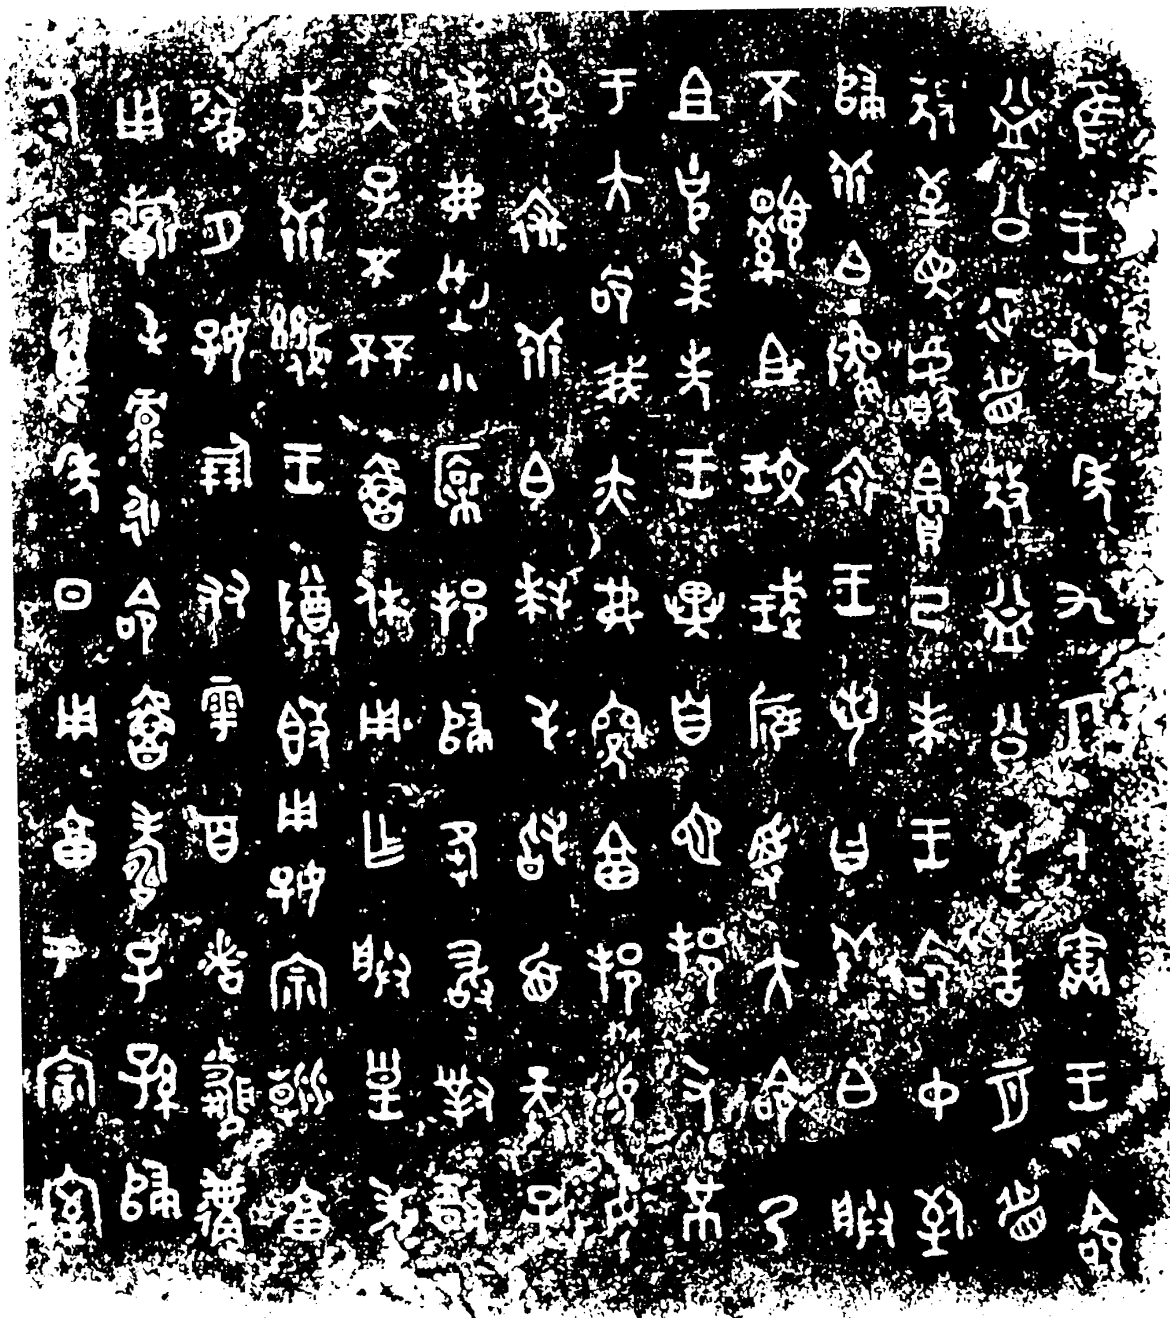 隹王九年九月甲寅王命
益公征眉敖益公至告二月眉
敖至見獻帛己未王命中致
歸乖白貔裘王若曰乖白朕
不顯且玟珷膺受大命乃
且克奉先王異自它邦又芇
于大命我亦弗深享邦易女
貔裘乖白拜手𩒨首天子
休弗朢小裔邦歸夆敢對揚
天子不杯魯休用乍朕皇考
武乖幾王尊簋用好宗朝享
夙夕好倗友雩百者婚遘
用祈屯彔永命魯壽子孫歸
夆其萬年日用享于宗室